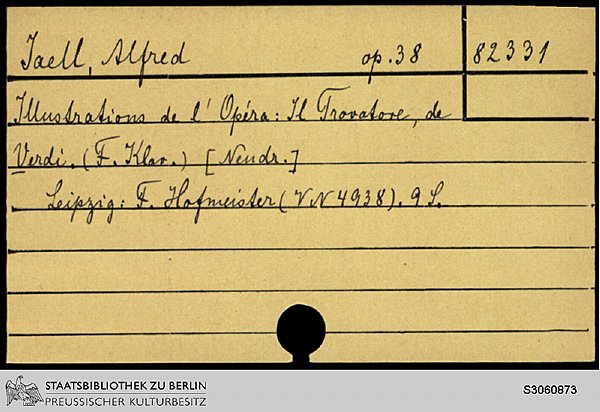 Jaell, Alfred op. 38 82331
Illustrations de l'Opéra: Il Trovatore, de
Verdi. (F. Klav.) [Neudr.]
Leipzig: F. Hofmeister (VN 4938). 9 S.
STAATSBIBLIOTHEK ZU BERLIN
PREUSSISCHER KULTURBESITZ
S3060873